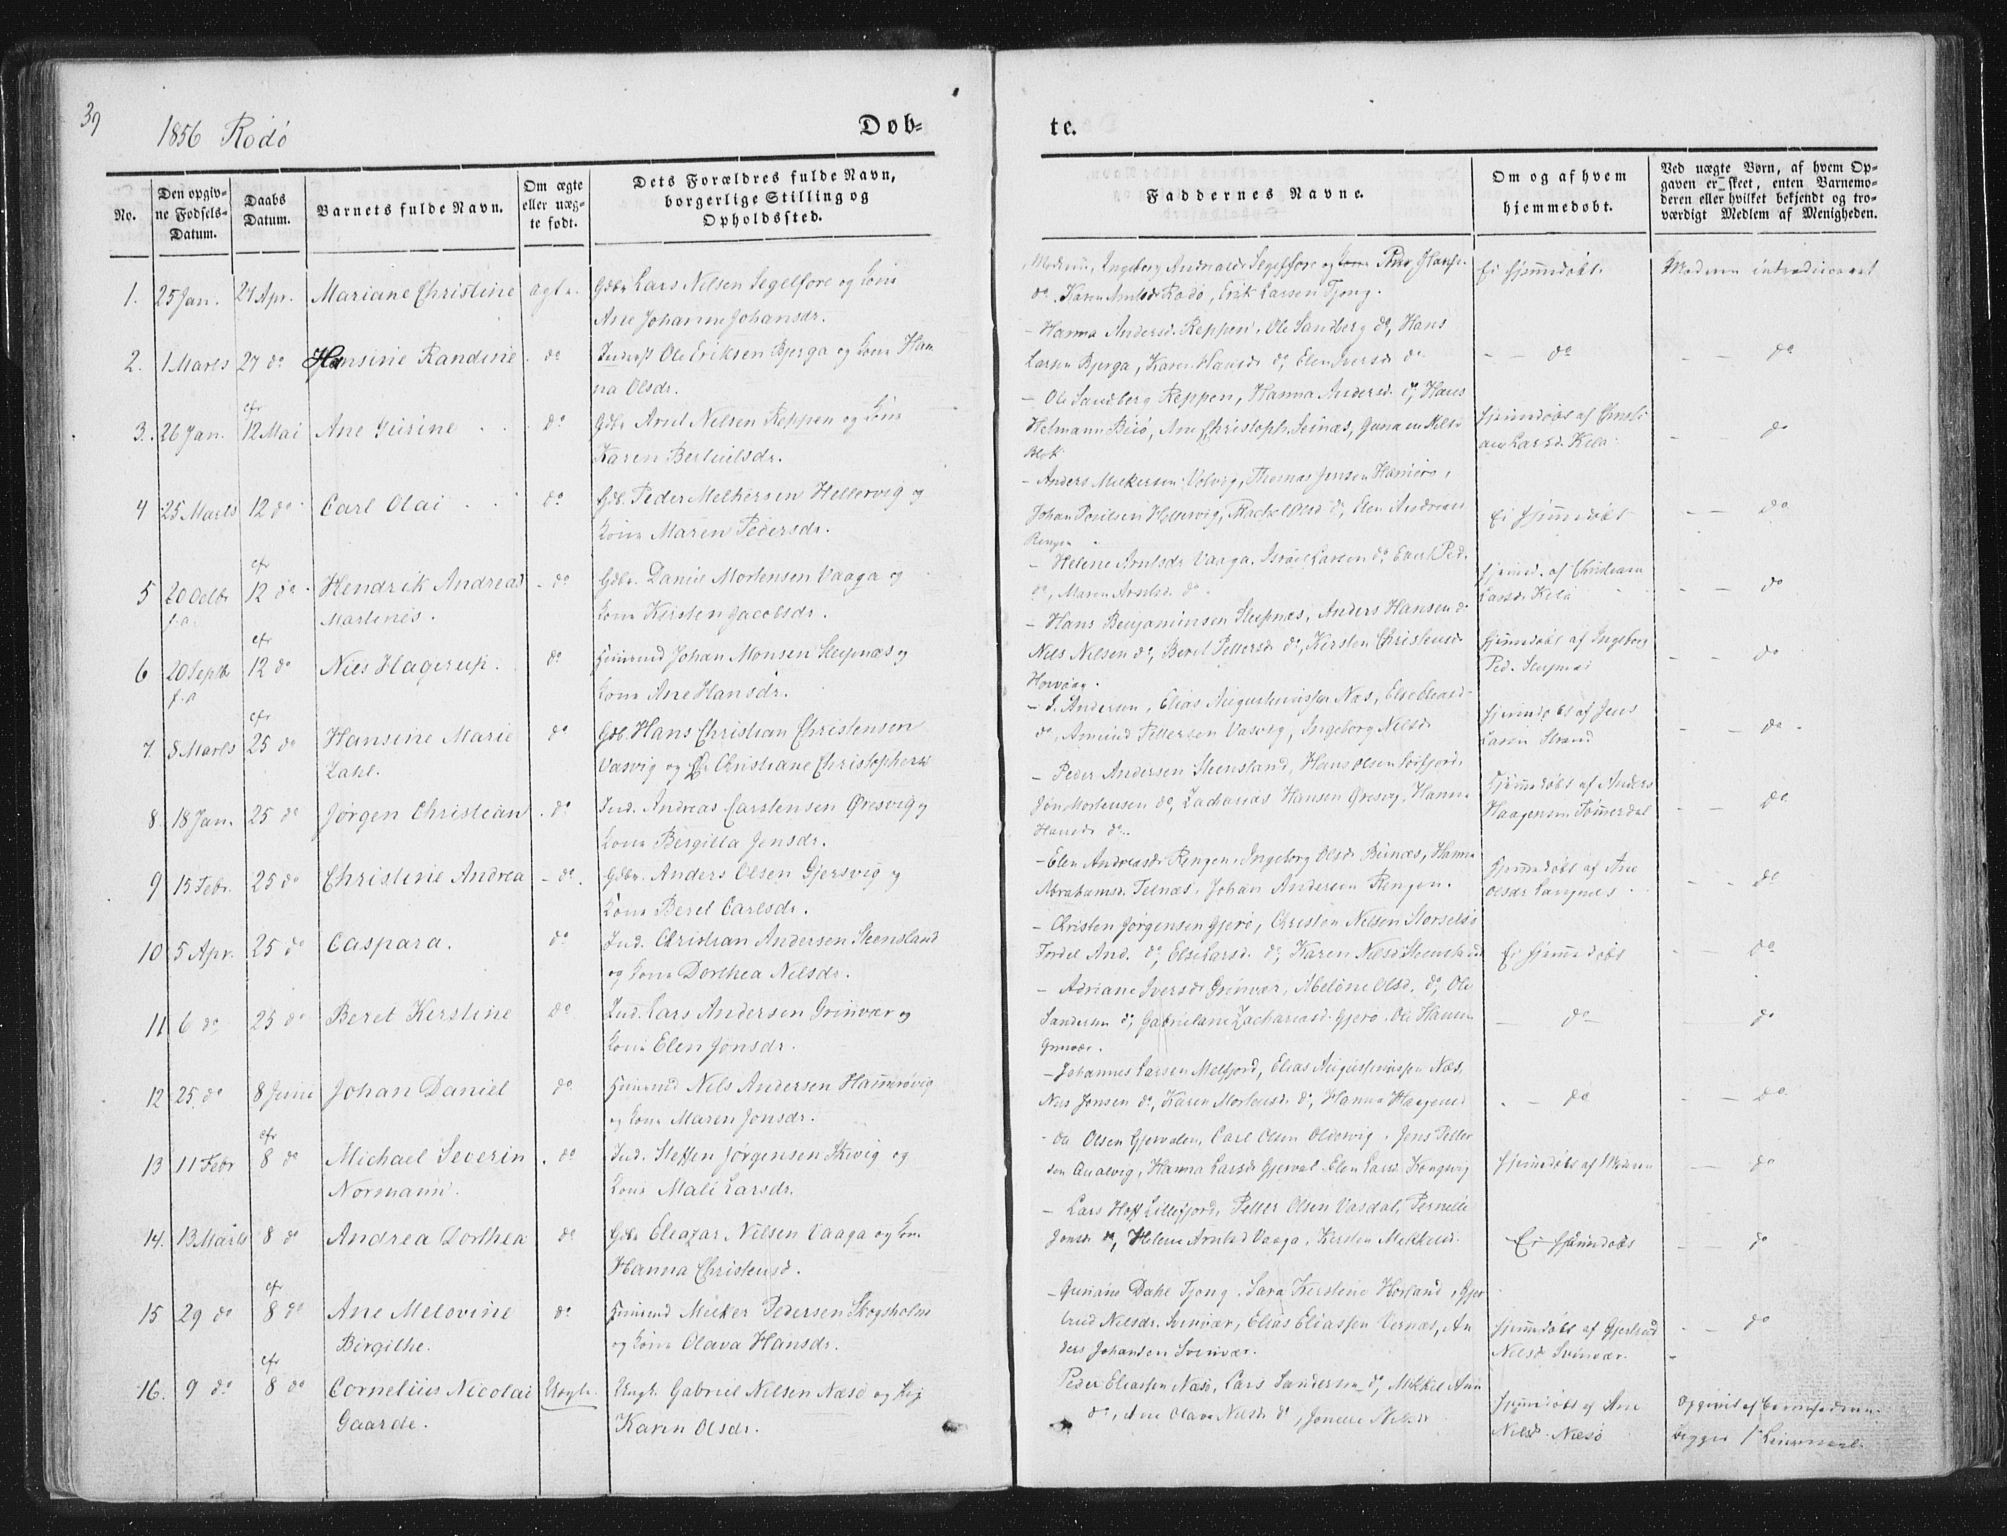 39
1856 Rødø
Døb-
te.
No.
Den opgiv-
ne Fødsels-
Datum.
Daabs
Datum.
Barnets fulde Navn.
Om ægte
eller uæg-
te født.
Dets Forældres fulde Navn,
borgerlige Stilling og
Opholdssted.
Faddernes Navne.
Om og af hvem
hjemmedøbt.
Ved uægte Børn, af hvem Op-
gaven er skeet, enten Barnemo-
deren eller hvilket bekjendt og tro-
værdigt Medlem af Menigheden.
1. 25 Jan. 27 Apr. Mariane Christine ægte. Gdbr Lars Nilsen Segelfore og Kone
Ane Johanne Johansdr.
Moderen, Ingeborg Segelfore og Peder
do. Karen Arntsdr Rødø, Erik Larsen Tjong.
Ei hjemmedøbt.
Moderen introduceret
2. 1 Marts 27 do Hansine Randine do Inderst Ole Eriksen Bjerga og Kone Han
na Olsdr.
- Hanna Andersd. Reppen, Ole Sandberg do, Hans
Larsen Bjerga, Karen Hansdr do, Elen Iversdr do
- - do
- - do
3. 26 Jan. efr 12 Mai Ane Gurine do Gdbr Arnt Nilsen Reppen og Kone
Karen Bertheilsdr.
- Ole Sandberg Reppen, Hanna Andersd. do, Hans
Helmann, Ane Christophs. Selnæs, Nils
hjemmedøbt af
Larsd. Kila
- - do
4 25 Marts 12 do Carl Olai do Gdb. Peder Melkersen Hellervig og
Kone Maren Pedersdr.
- Anders Mickersen Valvig, Thomas Jensen Hamerø,
Johan Poulsen Hellervig, Rachel Olsd do, Elen
Rengen
Ei hjemmedøbt
- - do
5 20 Octbr f.a. efr 12 do Hendrik Andreas
Martines.
do Gdbr. Daniel Mortensen Vaaga og
Kone Kirsten Jacobsdr.
- Helene Arntsdr Vaaga, Israel Larsen do, Ped.
do, Maren Arntsd. do
hjemd. af Christiane
Larsdr Kila
- - do
6 20 Septb f.a efr 12 do Niels Hagerup. do Huusmd Johan Monsen Sleipnæs og
Kone Ane Hansdr.
- Hans Benjaminsen Sleipnæs, Anders Hansen do
Nils Nilsen do, Beret Pettersdr do, Kirsten Christensdr
hjemmedøbt af Ingeborg
Ped. Sleipnæs
- - do
7 8 Marts efr 25 do Hansine Marie
Zahl.
do Gdb. Hans Christian Christensen
Vasvig og K. Christiane Christophersd
- J. Andersen, Elias Augustinussen Næs,
do, Amund Pettersen Vasvig, Ingeborg Nilsdr
hjemmedøbt af Jens
Larsen Strand
- - do
8 18 Jan. 25 do Jørgen Christian do Ind. Andreas Carstensen Øresvig og
Kone Bergitta Jonsdr.
- Peder Andersen Steensland, Hans Olsen
Jøn Mortensen do, Zacharias Hansen Øresvg, Hanna
Hansdr do.
hjemmedøbt af Anders
Haagensen
- - do
9 15 Febr. 25 do Christine Andrea - do. Gdbr. Anders Olsen Gjersvig og
Kone Beret Carlsdr.
- Elen Andreasdr Rengen, Ingeborg Olsdr, Hanna
Abrahamsd. Selnæs, Johan Andersen Rengen.
hjemmedøbt af Ane
Olsdr Langnes
- - do
10 5 Apr. 25 do Caspara. do Ind. Christian Andersen Steensland
og Kone Dorthea Nilsdr.
- Christen Jørgensen Gjerø, Christen Nilsen Storselsø
Tordel And. do, Else Larsd. do, Karen Nilsd Steensland
Ei hjemmedøbt
- - do
11 6 do 25 do Beret Kerstine do Ind. Lars Andersen Grinvær og
Kone Elen Jonsdr.
- Adriane Iversdr Grinvær, Olsd. do, Ole
Sandersen do, Gabrielane Zachariasd. Gjerø. Ole Hansen
Grinvær.
- do
- do
12 25 do 8 Juni Johan Daniel do Huusmd Nils Andersen Hammervig
og Kone Maren Jonsdr.
- Johannes Larsen Melfjord, Elias Augustinussen Næs,
Nils Jonsen do, Karen Mortensdr do, Hanna Haagensd
- do
- - do
13 11 Febr efr 8 do Michael Severin
Normann.
do Ind. Steffen Jørgensen Skivig og
Kone Mali Larsdr.
Olsen Gjervalen, Carl Olsen Oldervig, Jens Petter
sen Qualvig, Hanna Larsdr Gjerval, Elen Larsd. Kongsvig
hjemmedøbt af Moderen
- do
14. 13 Marts 8 do Andrea Dorthea do Gdbr Eleazar Nilsen Vaaga og Kone
Hanna Christensd.
- Lars Hoff Lillefjord, Petter Olsen Vasdal, Pernille
Jonsdr do, Helene Arntsd Vaaga, Kirsten Mikkelsd.
Ei hjemmedøbt
- - do
15 29 do efr 8 do Ane Melovine
Birgithe.
do Huusmd Micker Pedersen Skogsholm
og Kone Olava Hansdr.
- Dahl Tjong, Sara Kerstine Horland, Gjer
trud Nilsdr. Svinvær, Elias Eliassen Værnæs, An
ders Johansen Svinvær.
hjemmedøbt af Gjertrud
Nilsd Svinvær.
- - do
16. 9 do efr 8 do Cornelius Nicolai
Gaarde.
Uægte. Ungk. Gabriel Nilsen Næsø og Pig
Karen Olsdr.
Peder Eliassen Næsø, Lars Sandersen do, Mikkel
do, Ane Olava Nilsdr do,
hjemmedøbt af Ane
Nilsd. Næsø
Opgivet af Barnefaderen